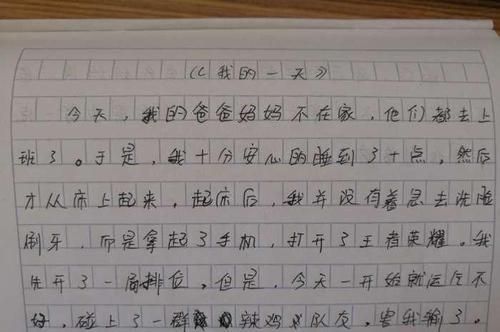 《我的一天》
今天，我的爸爸妈妈不在家，他们都去上
班了。于是，我十分安心的睡到了十点，然后
才从床上起来，起床后，我并没有着急去洗脸
刷牙，而是拿起了手机，打开了王者荣耀。我
先开了一局排位，但是，今天一开始就运气不
好，碰上了一群辣鸡队友，害我输了。